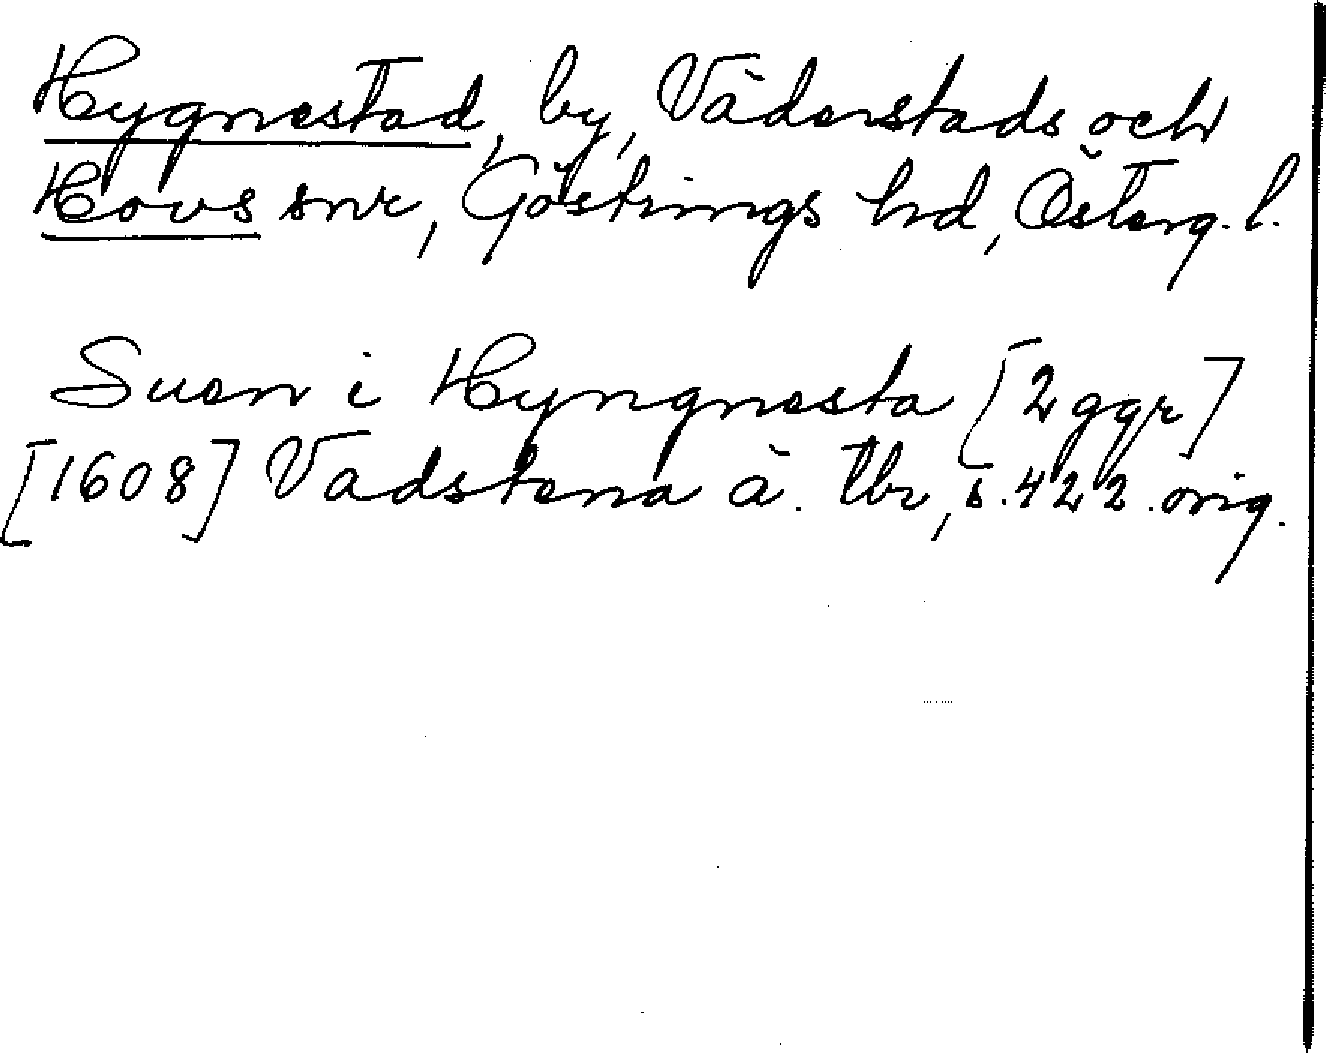 Hygnestad, by, Väderstads och
Hovs snr, Göstrings hd, Österg. l.
Suen i Hyngnesta [2 ggr]
[1608] Vadstena ä. tbr, s. 422. orig.